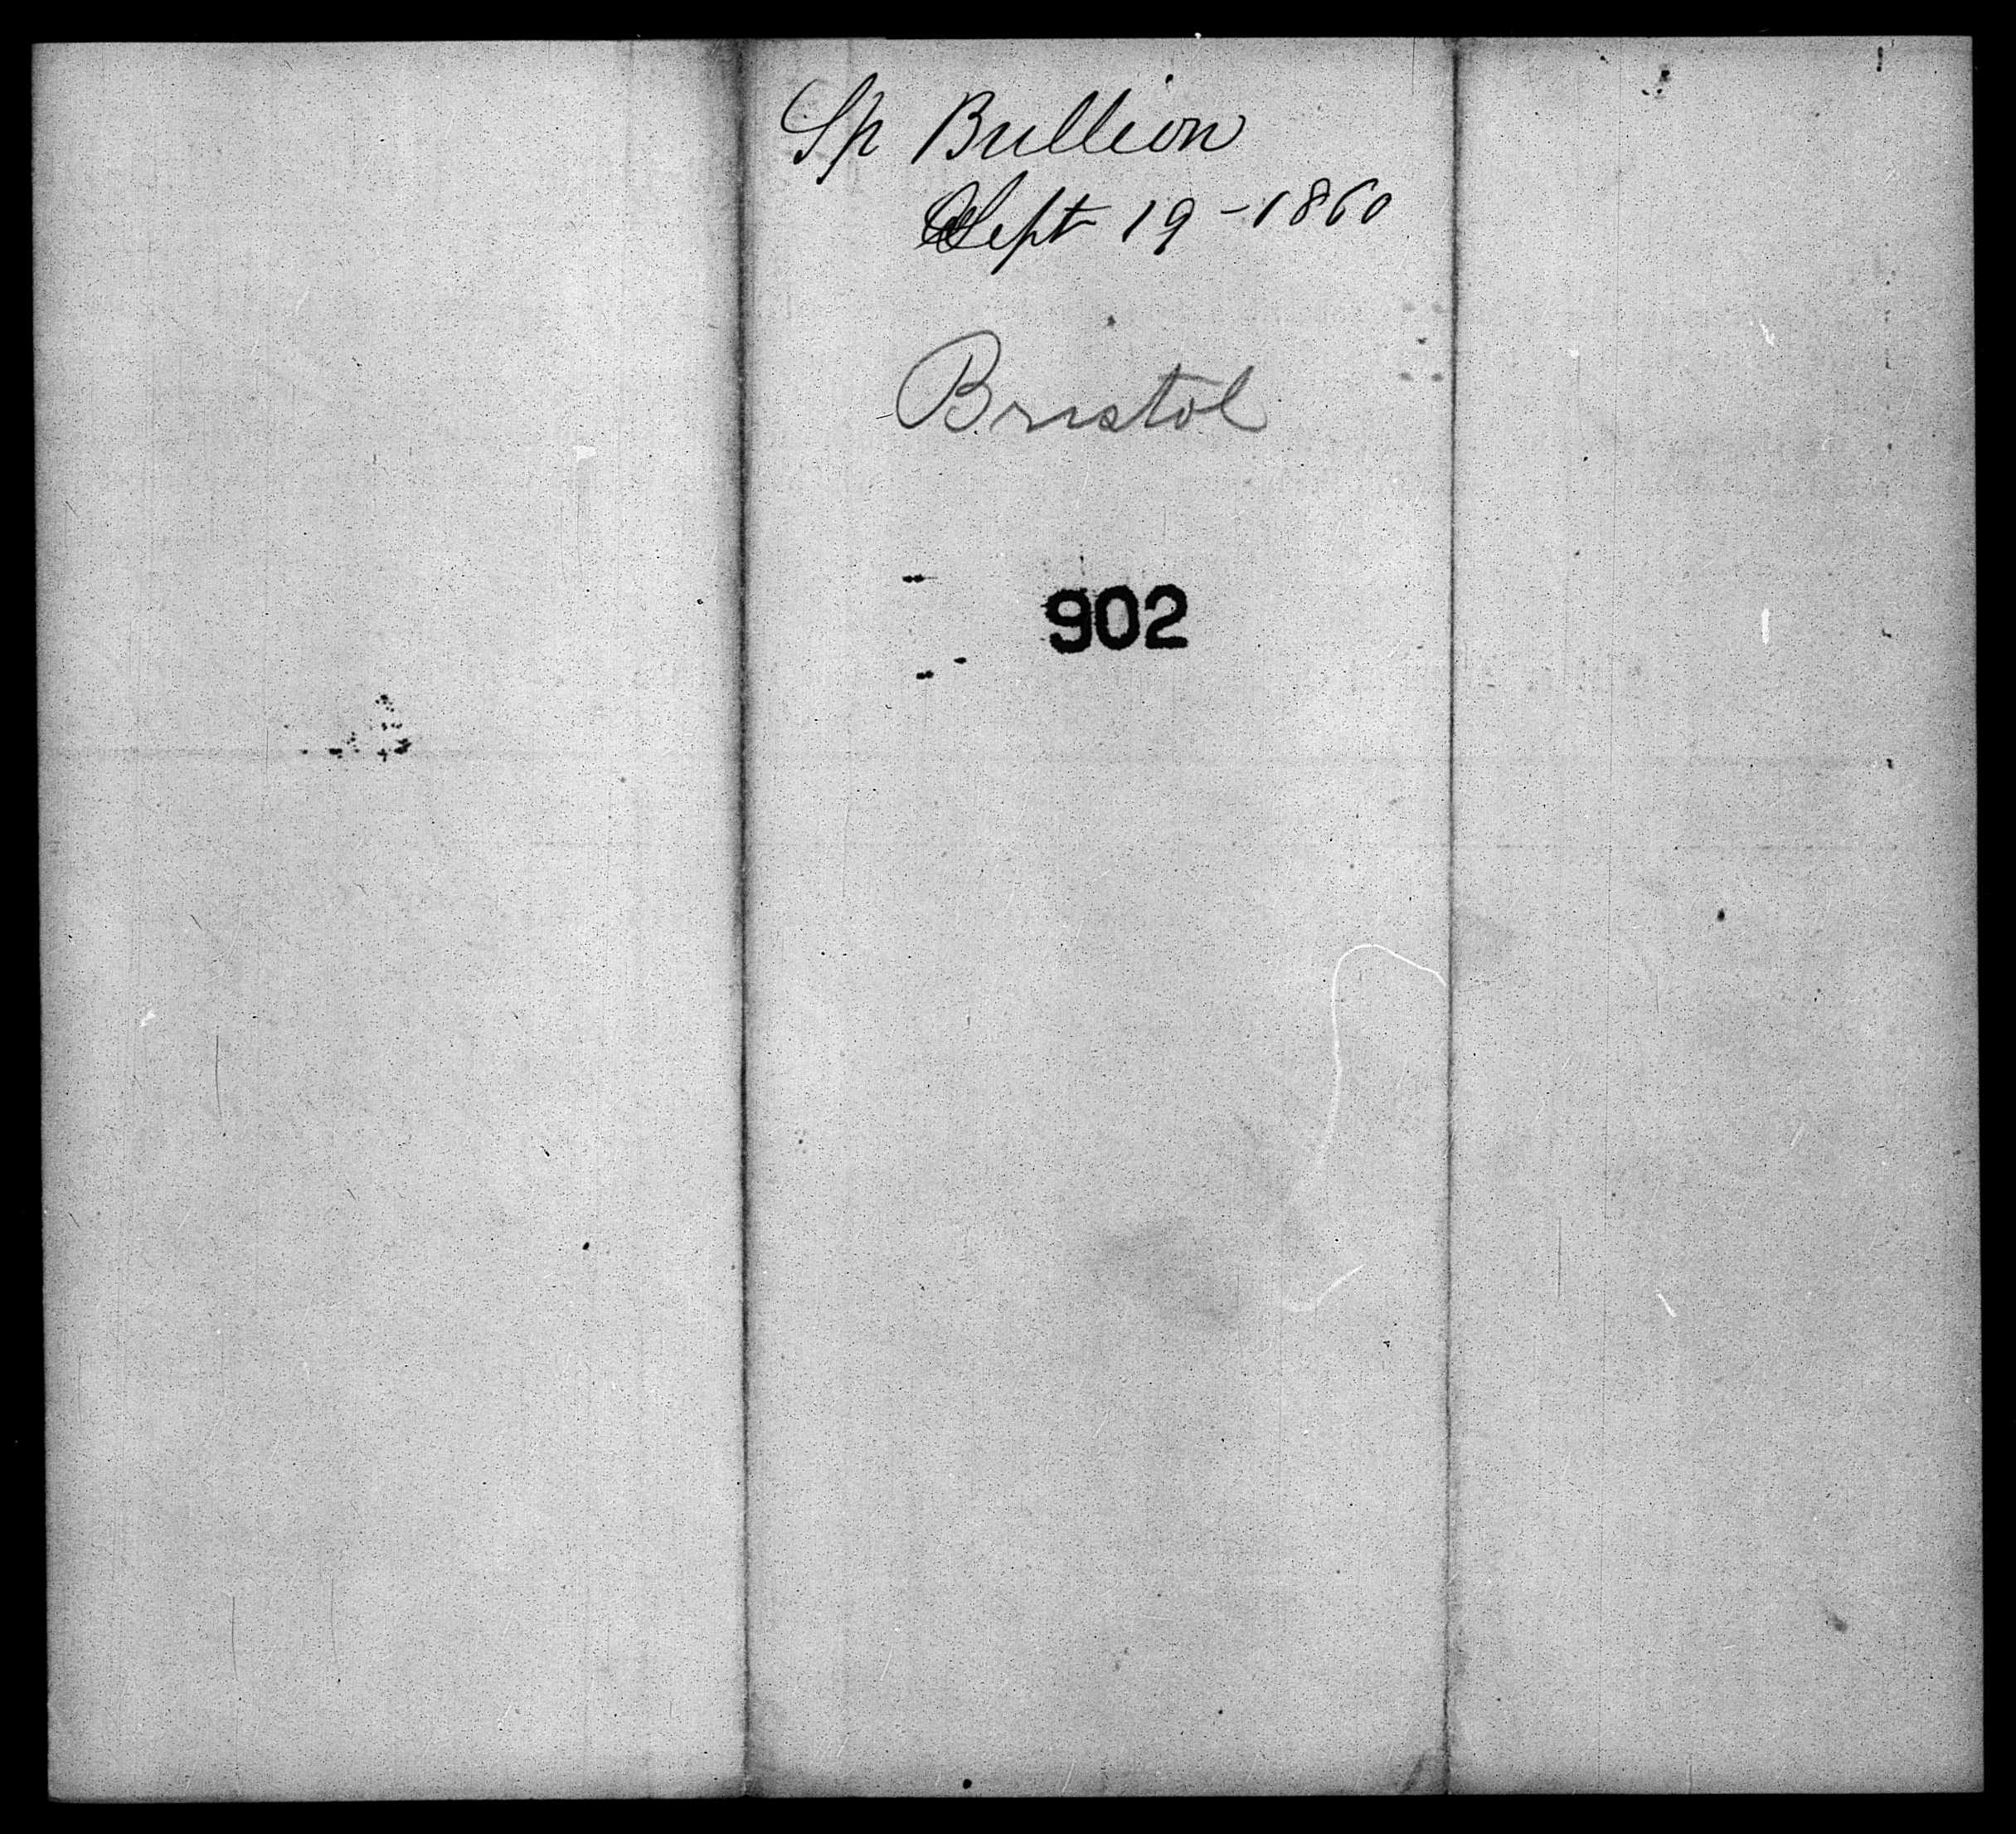 Sp Bullion
Sept 19 - 1860
Bristol
902